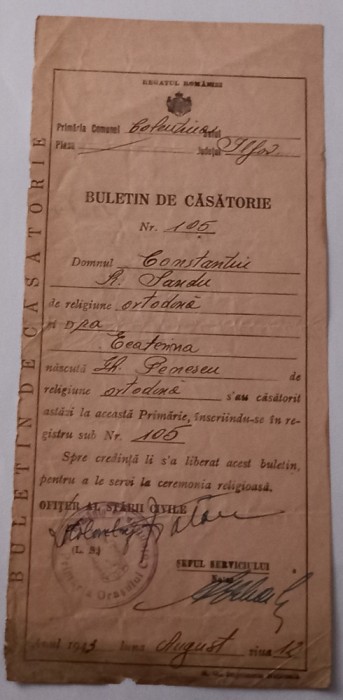 BULETIN DE CĂSĂTORIE
REGATUL ROMÂNIEI
Primăria Comunei Colentina
Plasa Județul Ilfov
BULETIN DE CĂSĂTORIE
Nr. 105
Domnul Constantin
R. Sandu
de religiune ortodoxă
și D-ra
Ecaterina
născută Penescu de
religiune ortodoxă s'au căsătorit
astăzi la această Primărie, înscriindu-se în re-
gistru sub Nr. 105
Spre credință li s'a liberat acest buletin,
pentru a le servi la ceremonia religioasă.
OFIȚER AL STĂRII CIVILE
(L. S.)
ȘEFUL SERVICIULUI
Anul 1943 luna August ziua 12